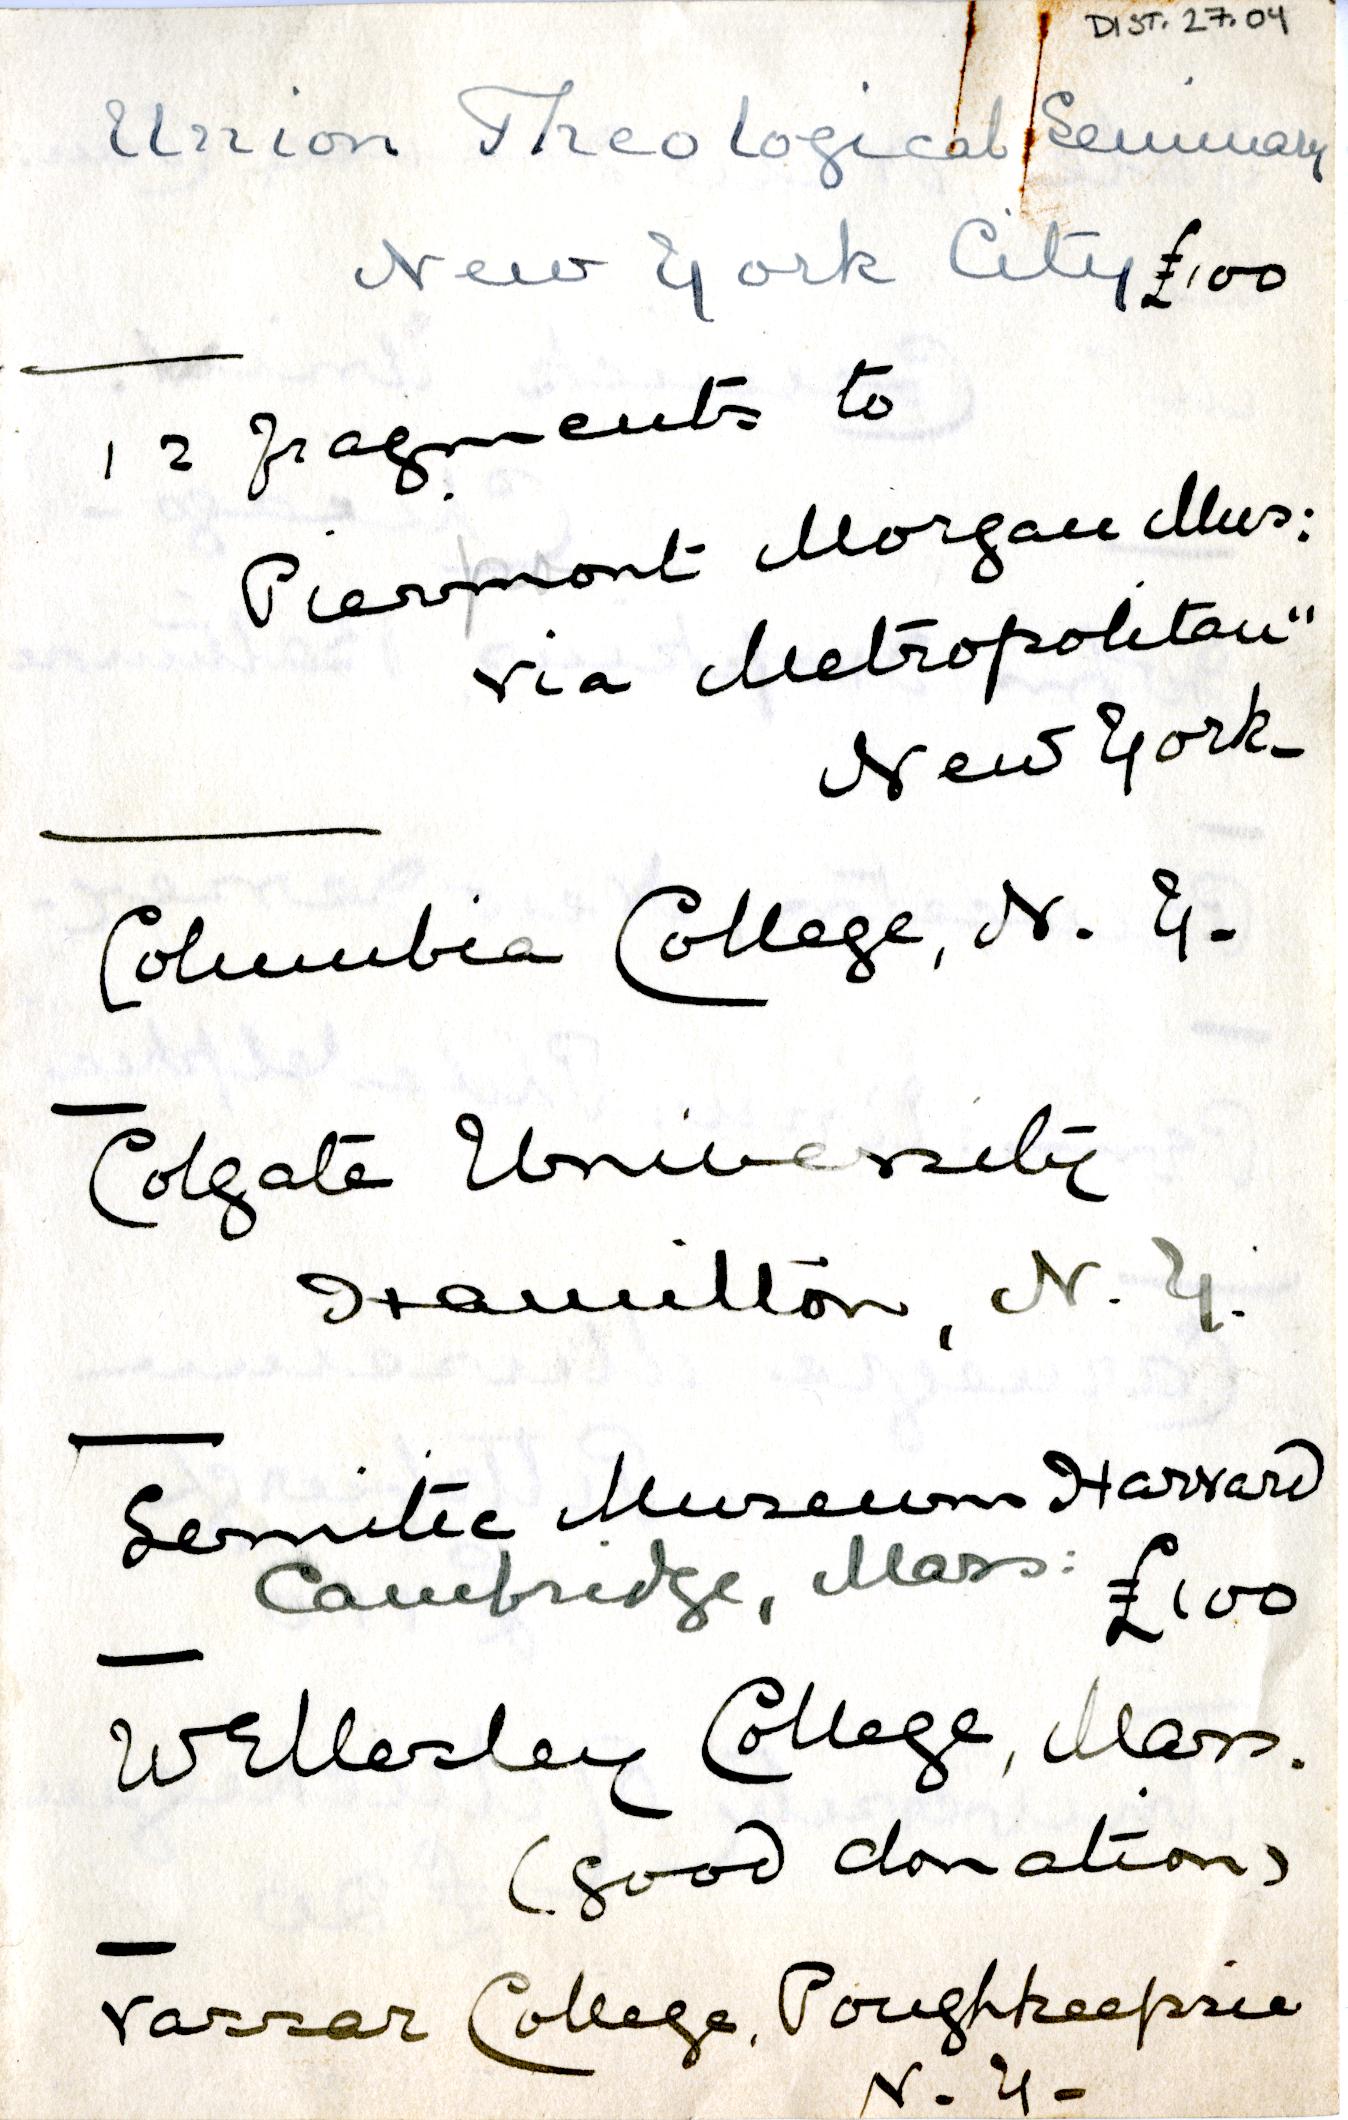 DIST. 27.04
Union Theological Seminary
New York City £100
12 fragments to
Piermont Morgan Mus:
via Metropolitan "
New York -
Columbia College, N. Y.
Colgate University
Hamilton, N. Y.
Semitic Museum Harvard
Cambridge, Mass: £100
Wellesley College, Mass.
(good donation)
Vassar College, Poughkeepsie
N. Y -